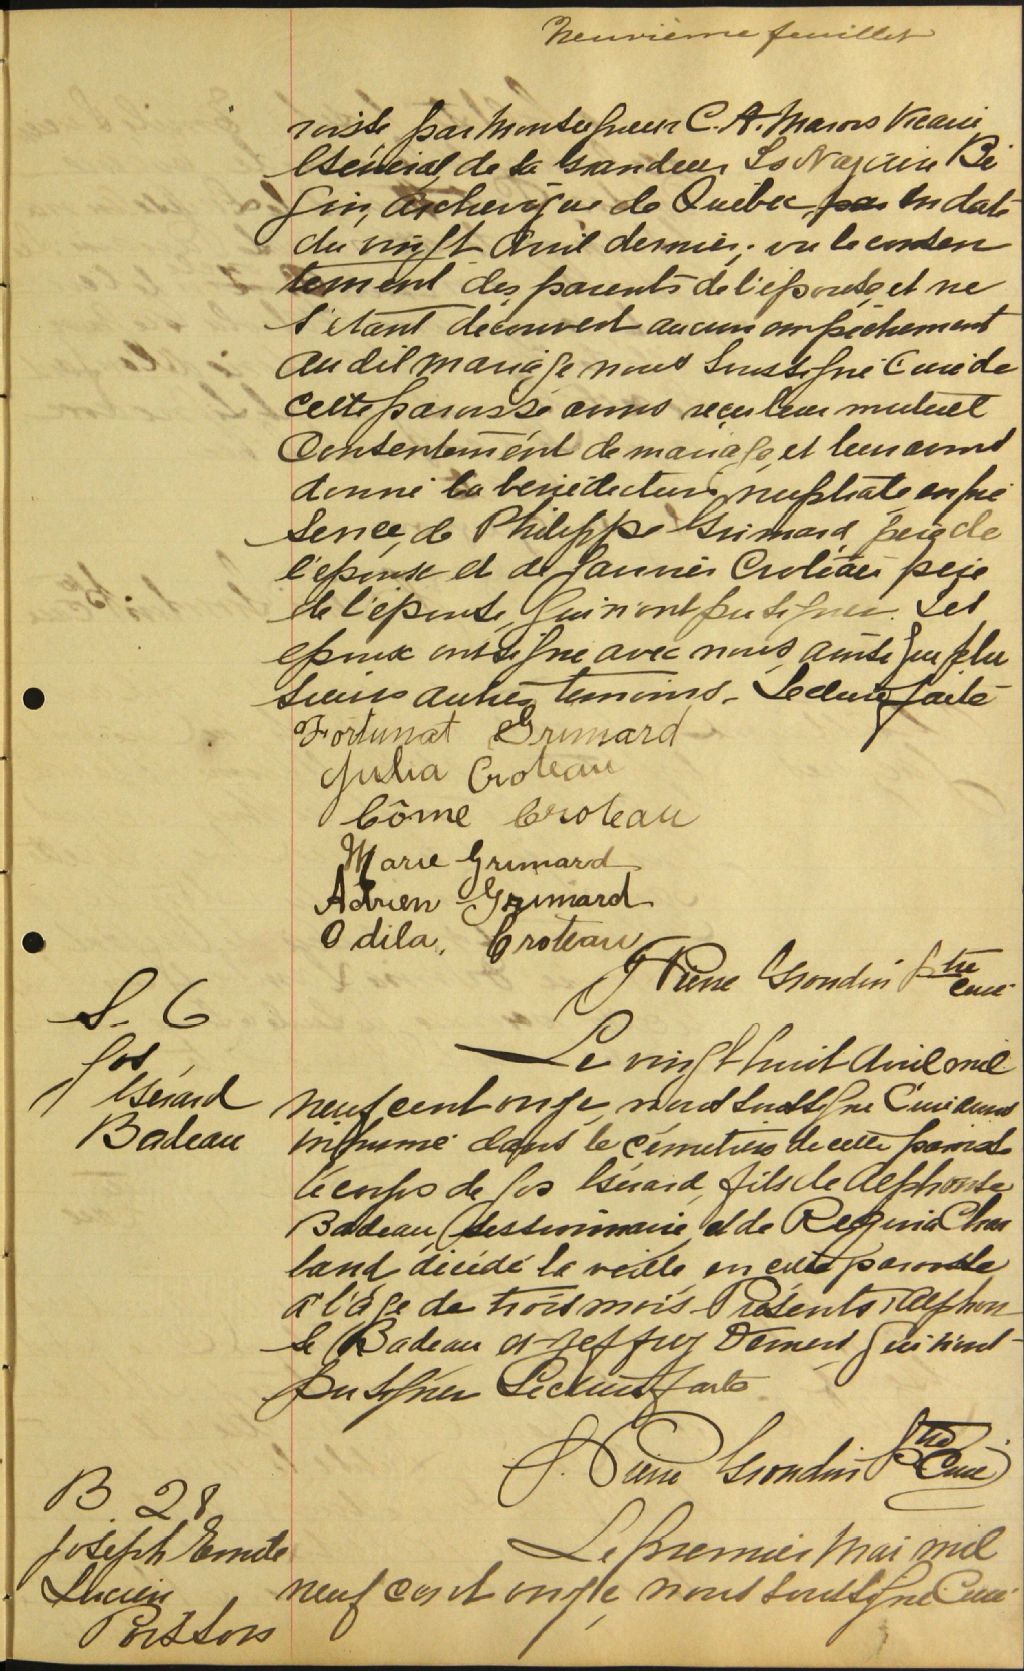 Neuvième feuillet
roisse par Monseigneur C. A. Marois Vicaire
Général de Sa Grandeur Ls Nazaire Bé
gin, Archevêque de Québec, en date
du vingt Avril dernier; vu le consen
tement des parents de l'épouse, et ne
s'étant découvert aucun empêchement
au dit mariage nous soussigné Curé de
cette paroisse avons reçu leur mutuel
Consentement de mariage, et leur avons
donné la bénédiction nuptiale en pré
sence, de Philippe Grimard, père de
l'époux et de Croteau père
de l'épouse, qui n'ont pu signer. Les
époux ont signé avec nous ainsi que plu
sieurs autres témoins. Lecture faite
Fortunat Grimard
Julia Croteau
Côme Croteau
Marie Grimard
Adrien Grimard
Odila. Croteau
J. Pierre Grondin Ptre
Curé
S. 6
Jos
Gérard
Badeau
Le vingt huit Avril mil
neuf cent onze, nous soussigné Curé avons
inhumé dans le cémetière de cette paroisse
le corps de Jos Gérard, fils de Alphonse
Badeau, et de Regina Char
land, décédé la veille, en cette paroisse
à l'âge de trois mois. Présents: Alphon
se Badeau et Demers qui n'ont
pu signer. Lecture faite
J. Pierre Grondin Ptre
Curé
B 28
Joseph Emile
Lucien
Poisson
Le premier Mai mil
neuf cent onze, nous soussigné Curé